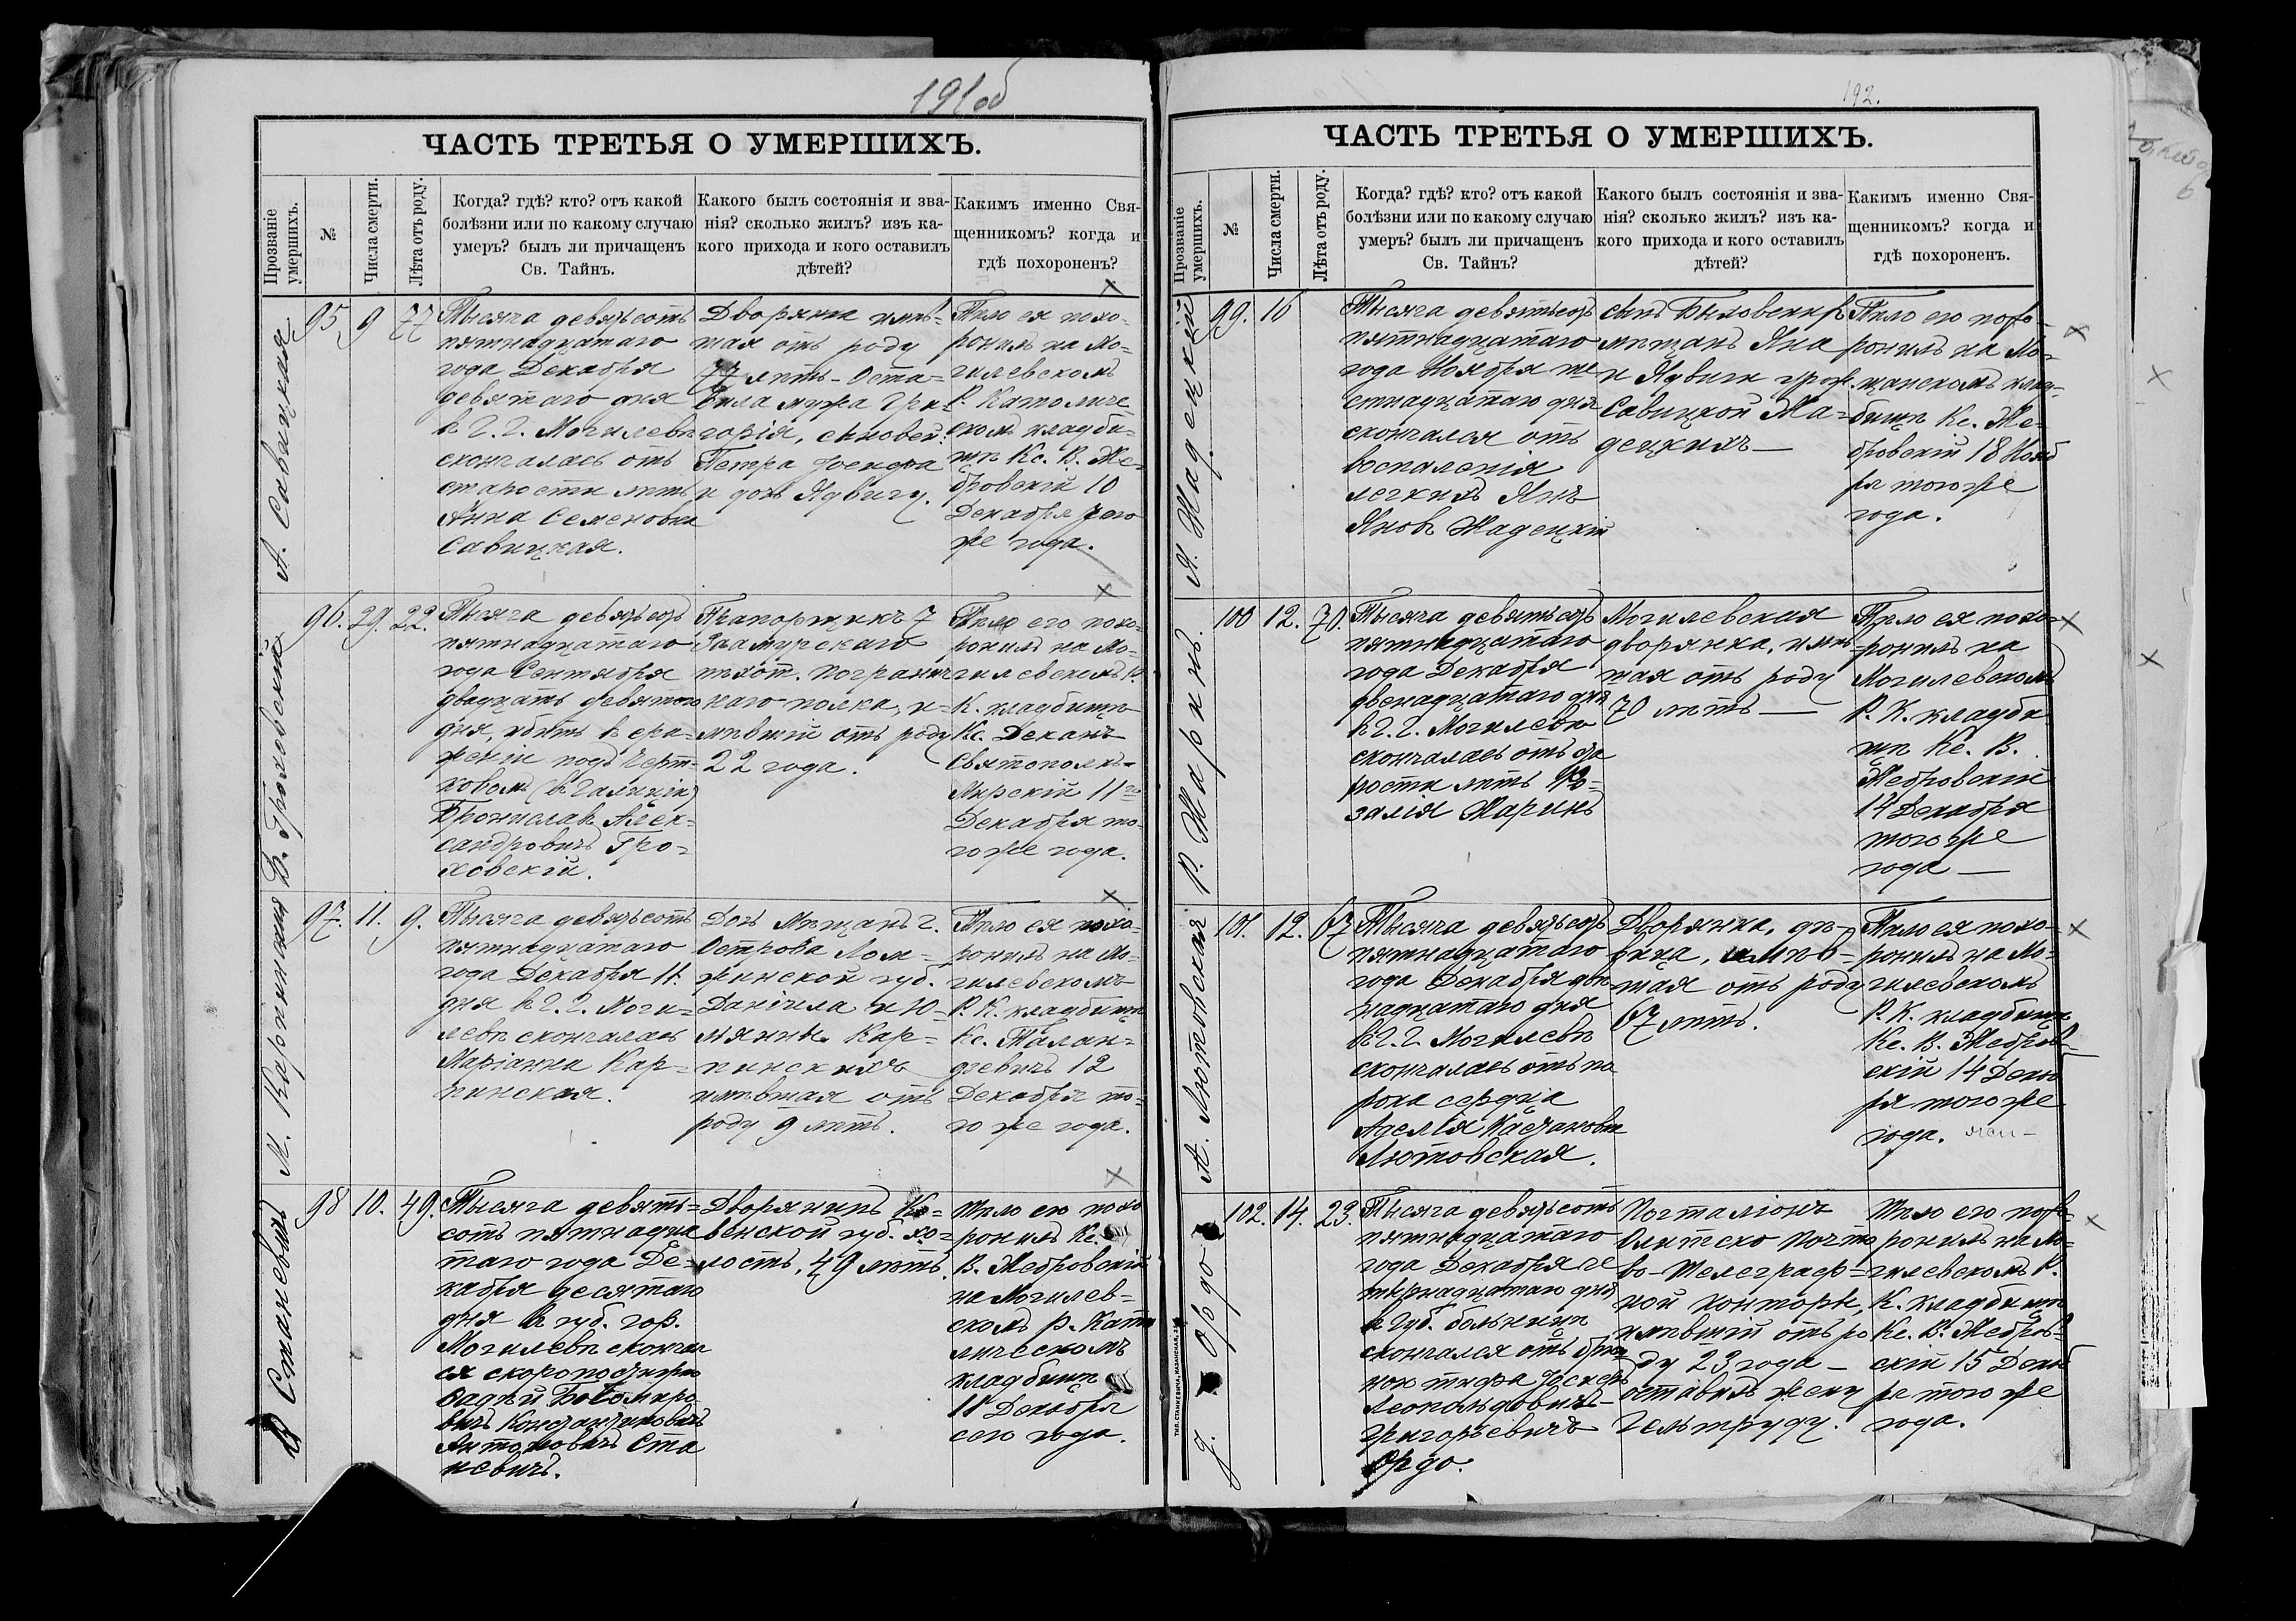 191об
ЧАСТЬ ТРЕТЬЯ О УМЕРШИХЪ.
Прозваніе умершихъ.
№
Числа смерти.
Лѣта отъ роду.
Когда? гдѣ? кто? отъ какой
болѣзни или по какому случаю
умеръ? былъ ли причащенъ
Св. Тайнъ.
Какого былъ состоянія и зва-
нія? сколько жилъ? изъ ка-
кого прихода и кого оставилъ
дѣтей?
Какимъ именно Свя-
щенникомъ? когда и
гдѣ похороненъ?
А. Савицкая
95
9
77
Тысяча девятьсотъ
пятнадцатаго
года Декабря
девятаго дня
въ г. г. Могилевѣ
скончалась отъ
старости лѣтъ
Анна Семеновна
Савицкая.
Дворянка имѣв-
шая отъ роду
77 лѣтъ - Оста-
вила мужа Гри-
горія, сыновей:
Петра Іосифа
и дочь Ядвигу.
Тѣло ея похо-
ронилъ на Мо-
гилевскомъ
Р. Католиче
скомъ кладби-
щѣ Кс. В. Же-
бровскій 10
Декабря того
же года.
Б. Гроховскій
96.
29.
22.
Тысяча девятьсотъ
пятнадцатаго
года Сентября
двадцать девятого
дня, убитъ въ сра-
женіи подъ Черт-
ковомъ (въ Галиціи)
Брониславъ Алек-
сандровичъ Гро-
ховскій.
Прапорщикъ 7
Заамурскаго
пѣхот. погранич
наго полка, и-
мѣвшій отъ роду
22 года.
Тѣло его похо-
ронилъ на Мо-
гилевскомъ Р.
К. кладбищѣ
Кс. Деканъ
Святополкъ-
Мирскій 11го
Декабря то-
го же года.
М. Карпинская
97.
11.
9.
Тысяча девятьсотъ
пятнадцатаго
года Декабря 11.
дня въ г. г. Моги-
левѣ скончалась
Маріанна Кар-
пинская.
Дочь Мѣщанъ г.
Острова Лом-
жинской губ.
Даніила и Ю-
ліянны Кар-
пинскихъ
имѣвшая отъ
роду 9 лѣтъ.
Тѣло ея похо-
ронилъ на Мо-
гилевскомъ
Р. К. кладбищѣ
Кс. Талан-
дзевичъ 12
Декабря то-
го же года.
Станевичъ
98
10.
49.
Тысяча девять-
сотъ пятнадца
таго года Де-
кабря десятаго
дня въ губ. гор.
Могилевѣ сконча
ся скоропостижно
Антоновичъ Ста
невичъ.
Дворянинъ Ко-
венской губ. хо-
лостъ, 49 лѣтъ.
Тѣло его похо
ронилъ Кс.
В. Жебровскій
на Могилев-
скомъ р. Като
лическомъ
кладбищѣ
11 Декабря
сего года.
192.
ЧАСТЬ ТРЕТЬЯ О УМЕРШИХЪ.
Прозваніе умершихъ.
№
Числа смерти.
Лѣта отъ роду.
Когда? гдѣ? кто? отъ какой
болѣзни или по какому случаю
умеръ? былъ ли причащенъ
Св. Тайнъ?
Какого былъ состоянія и зва-
нія? сколько жилъ? изъ ка-
кого прихода и кого оставилъ
дѣтей?
Какимъ именно Свя-
щенникомъ? когда и
гдѣ похороненъ.
99.
16
Тысяча девятьсотъ
пятнадцатаго
года Ноября ше
стнадцатаго дня
скончался отъ
воспаленія
легкихъ Янъ
сынъ Быховскихъ
мѣщанъ Яна
и Ядвиги урож.
Савицкой
Тѣло его похо-
ронилъ на
кладбищѣ Кс. Же-
бровскій 18 Нояб
ря того же
года.
Р. Жаринъ.
100
12.
70.
Тысяча девятьсотъ
пятнадцатаго
года Декабря
двенадцатаго дня
въ г. г. Могилевѣ
скончалась отъ ста
рости лѣтъ Ро-
залія Жаринъ
Могилевская
дворянка, имѣв
шая отъ роду
70 лѣтъ —
Тѣло ея похо-
ронилъ на
Могилевскомъ
Р. К. кладби
щѣ Кс. В.
Жебровскій
14 Декабря
того же
года —
А. Лютовская
101.
12.
67
Тысяча девятьсотъ
пятнадцатаго
года Декабря двѣ
надцатаго дня
въ г. г. Могилевѣ
скончалась отъ по
рока сердца
Аделія Каетановна
Лютовская.
Дворянка, дѣ-
вица, имѣв-
шая отъ роду
67 лѣтъ.
Тѣло ея похо-
ронилъ на Мо-
гилевскомъ
Р. К. кладбищѣ
Кс. В. Жебров-
скій 14 Декаб
ря того же
года.
102.
14.
23.
Тысяча девятьсотъ
пятнадцатаго
года Декабря че
тырнадцатаго дня
въ Губ. больницѣ
скончался отъ брюш
ного тифа
Леопольдовичъ
Григорьевичъ
Почталіонъ
почто
во-Телеграф-
ной конторы,
имѣвшій отъ ро
ду 23 года —
оставилъ жену
Гельтруду.
Тѣло его похо-
ронилъ на Мо-
гилевскомъ Р.
К. кладбищѣ
Кс. В. Жебров-
скій 15 Декаб
ря того же
года.